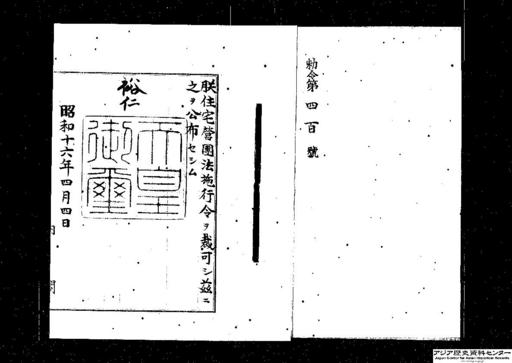 勅令第四百號
朕住宅營團法施行令ヲ裁可シ茲ニ
之ヲ公布セシム
裕仁
天皇御璽
昭和十六年四月四日
内閣
アジア歴史資料センター
Japan Center for Asian Historical Records